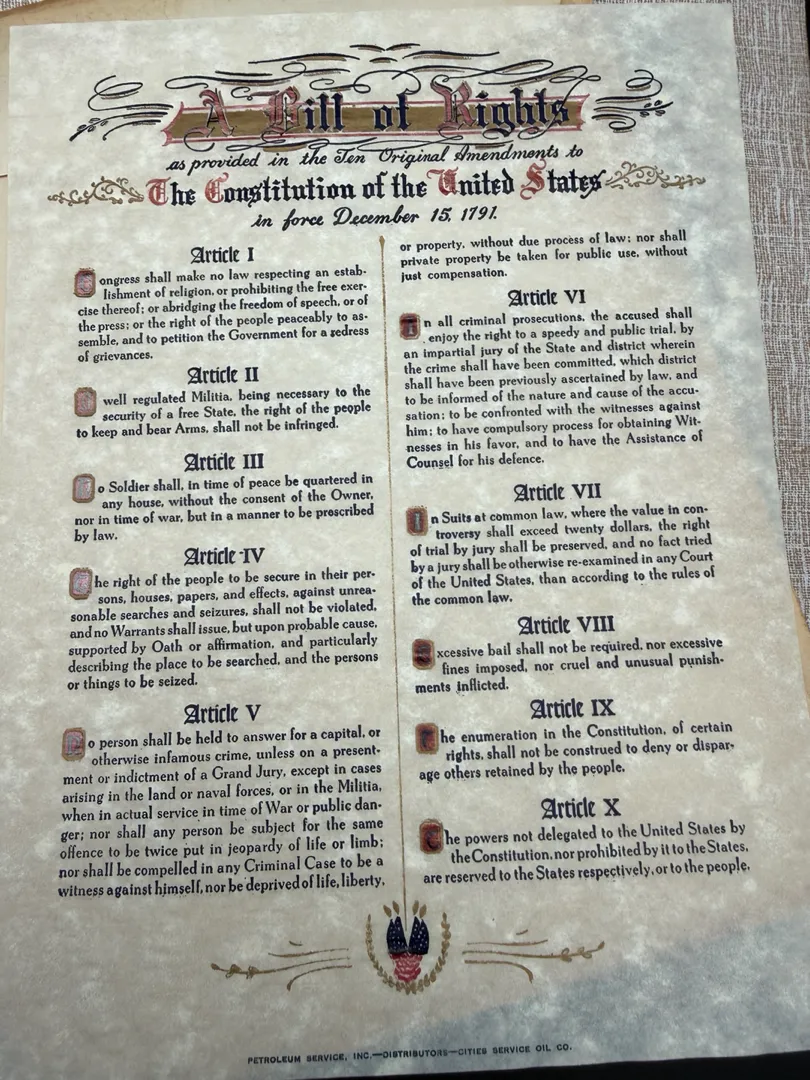 A Bill of Rights
as provided in the Ten Original Amendments to
The Constitution of the United States
in force December 15, 1791.
Article I
Congress shall make no law respecting an estab-
lishment of religion, or prohibiting the free exer-
cise thereof; or abridging the freedom of speech, or of
the press; or the right of the people peaceably to as-
semble, and to petition the Government for a redress
of grievances.
Article II
A well regulated Militia, being necessary to the
security of a free State, the right of the people
to keep and bear Arms, shall not be infringed.
Article III
No Soldier shall, in time of peace be quartered in
any house, without the consent of the Owner,
nor in time of war, but in a manner to be prescribed
by law.
Article IV
The right of the people to be secure in their per-
sons, houses, papers, and effects, against unrea-
sonable searches and seizures, shall not be violated,
and no Warrants shall issue, but upon probable cause,
supported by Oath or affirmation, and particularly
describing the place to be searched, and the persons
or things to be seized.
Article V
No person shall be held to answer for a capital, or
otherwise infamous crime, unless on a present-
ment or indictment of a Grand Jury, except in cases
arising in the land or naval forces, or in the Militia,
when in actual service in time of War or public dan-
ger; nor shall any person be subject for the same
offence to be twice put in jeopardy of life or limb;
nor shall be compelled in any Criminal Case to be a
witness against himself, nor be deprived of life, liberty,
or property, without due process of law; nor shall
private property be taken for public use, without
just compensation.
Article VI
In all criminal prosecutions, the accused shall
enjoy the right to a speedy and public trial, by
an impartial jury of the State and district wherein
the crime shall have been committed, which district
shall have been previously ascertained by law, and
to be informed of the nature and cause of the accu-
sation; to be confronted with the witnesses against
him; to have compulsory process for obtaining Wit-
nesses in his favor, and to have the Assistance of
Counsel for his defence.
Article VII
In Suits at common law, where the value in con-
troversy shall exceed twenty dollars, the right
of trial by jury shall be preserved, and no fact tried
by a jury shall be otherwise re-examined in any Court
of the United States, than according to the rules of
the common law.
Article VIII
Excessive bail shall not be required, nor excessive
fines imposed, nor cruel and unusual punish-
ments inflicted.
Article IX
The enumeration in the Constitution, of certain
rights, shall not be construed to deny or dispar-
age others retained by the people.
Article X
The powers not delegated to the United States by
the Constitution, nor prohibited by it to the States,
are reserved to the States respectively, or to the people.
PETROLEUM SERVICE, INC.—DISTRIBUTORS—CITIES SERVICE OIL CO.